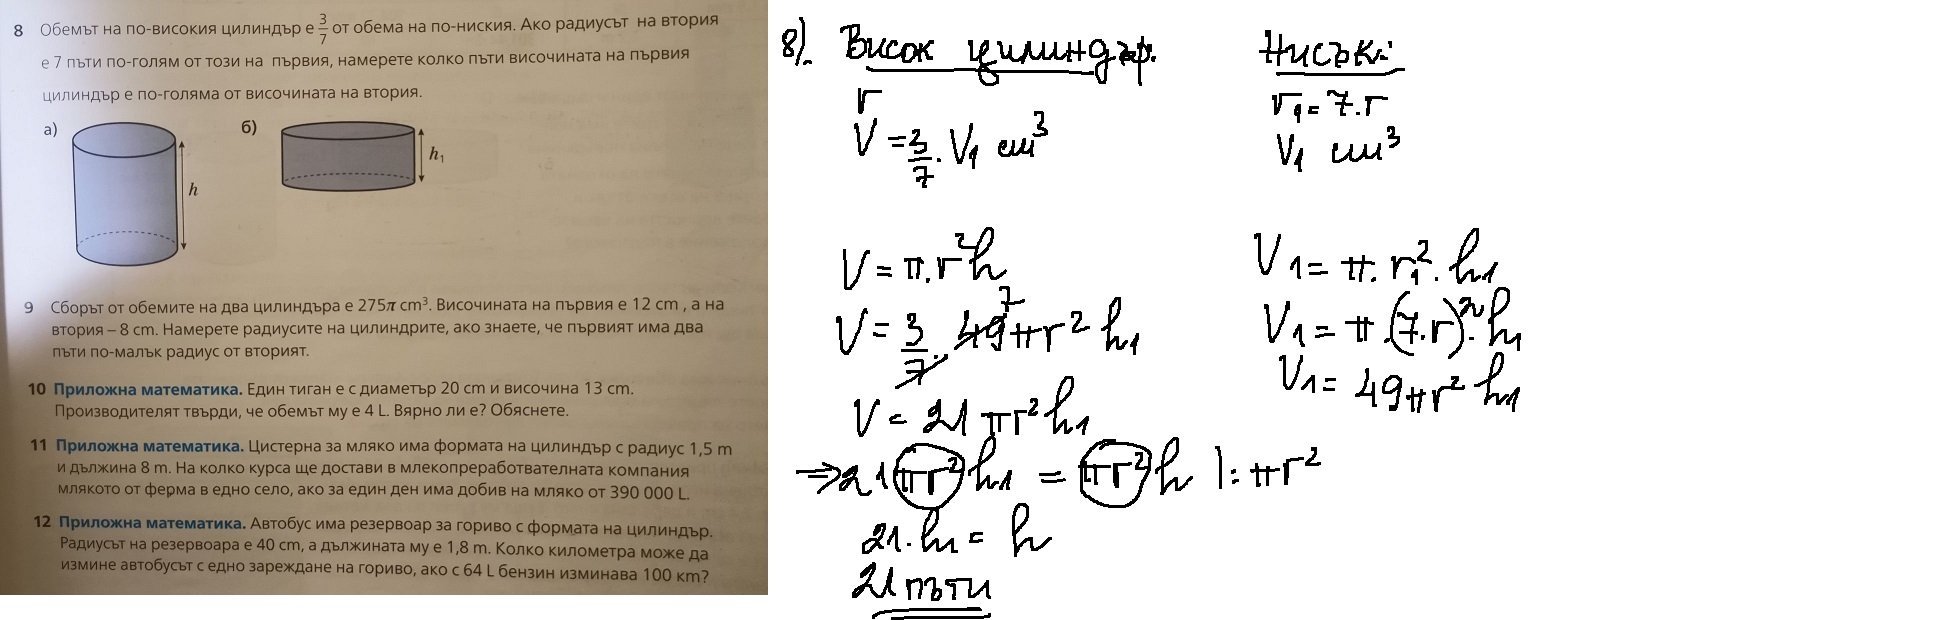 8 Обемът на по-високия цилиндър е 3/7 от обема на по-ниския. Ако радиусът на втория
е 7 пъти по-голям от този на първия, намерете колко пъти височината на първия
цилиндър е по-голяма от височината на втория.
а) б)
h
h₁
9 Сборът от обемите на два цилиндъра е 275π cm³. Височината на първия е 12 cm , а на
втория – 8 cm. Намерете радиусите на цилиндрите, ако знаете, че първият има два
пъти по-малък радиус от вторият.
10 Приложна математика. Един тиган е с диаметър 20 cm и височина 13 cm.
Производителят твърди, че обемът му е 4 L. Вярно ли е? Обяснете.
11 Приложна математика. Цистерна за мляко има формата на цилиндър с радиус 1,5 m
и дължина 8 m. На колко курса ще достави в млекопреработвателната компания
млякото от ферма в едно село, ако за един ден има добив на мляко от 390 000 L.
12 Приложна математика. Автобус има резервоар за гориво с формата на цилиндър.
Радиусът на резервоара е 40 cm, а дължината му е 1,8 m. Колко километра може да
измине автобусът с едно зареждане на гориво, ако с 64 L бензин изминава 100 km?
8). Висок цилиндър.
r
V = 3/7 . V₁ cm³
V = π.r²h
V = 3/7 . 49 7 πr² h₁
V = 21 πr² h₁
⇒ 21 πr² h₁ = πr² h |: πr²
21. h₁ = h
21 пъти
Нисък:
r₁ = 7.r
V₁ cm³
V₁ = π. r₁². h₁
V₁ = π .(7.r)². h₁
V₁ = 49πr² h₁